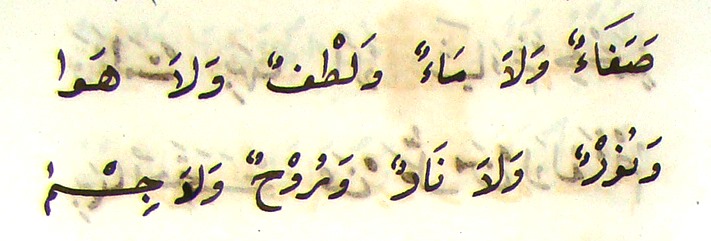 صَفَاءٌ وَلَا مَاءٌ وَلُطْفٌ وَلَا هَوا
وَنُوْرٌ وَلَا نَارٌ وَرُوْحٌ وَلَا جِسْمٌ